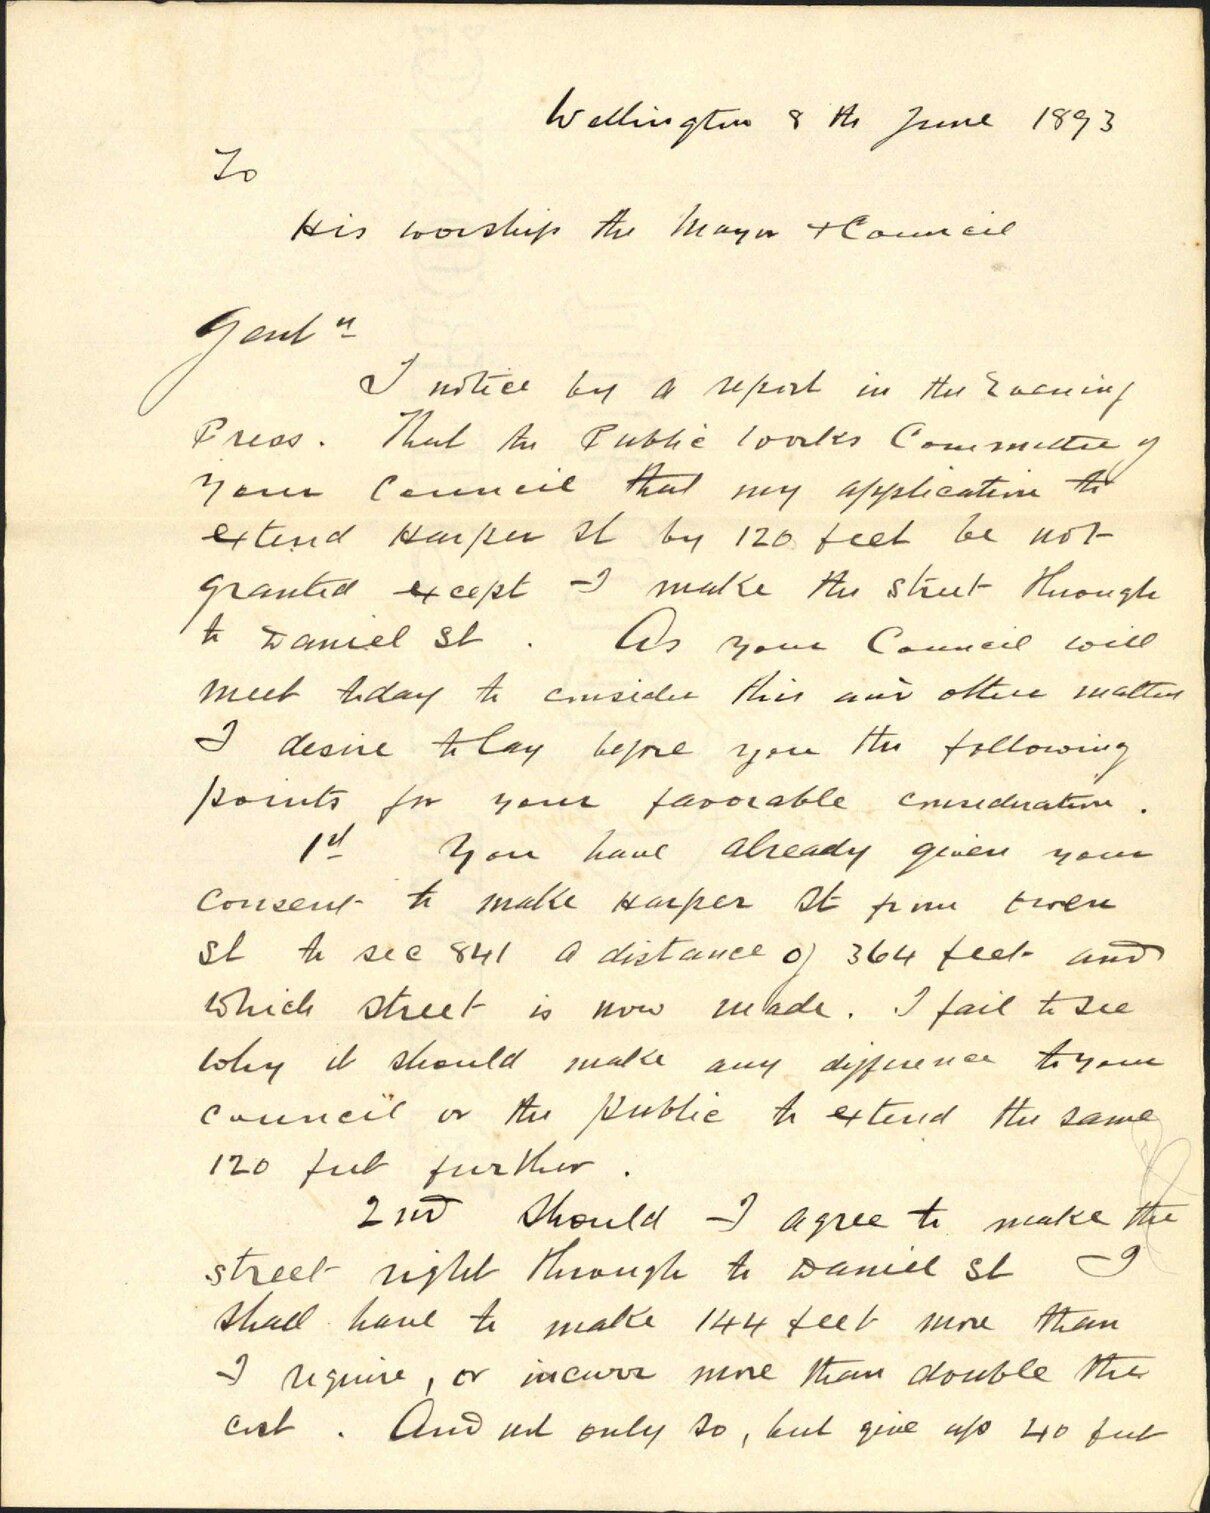 Wellington 8 th June 1893
To
His worship the Mayor & Council
Gentn
I notice by a report in the Evening
Press. That the Public Works Committee of
your Council that my application to
extend Harper St by 120 feet be not
granted except I make the street through
to Daniel St. As your Council will
meet today to consider this and other matters
I desire to lay before you the following
points for your favorable consideration.
1st You have already given your
consent to make Harper St from Owen
St to sec 841 a distance of 364 feet and
which street is now made. I fail to see
why it should make any difference to your
council or the public to extend the same
120 feet further.
2nd Should I agree to make the
street right through to Daniel St I
shall have to make 144 feet more than
I require, or incurr more than double the
cost. And not only so, but give up 40 feet